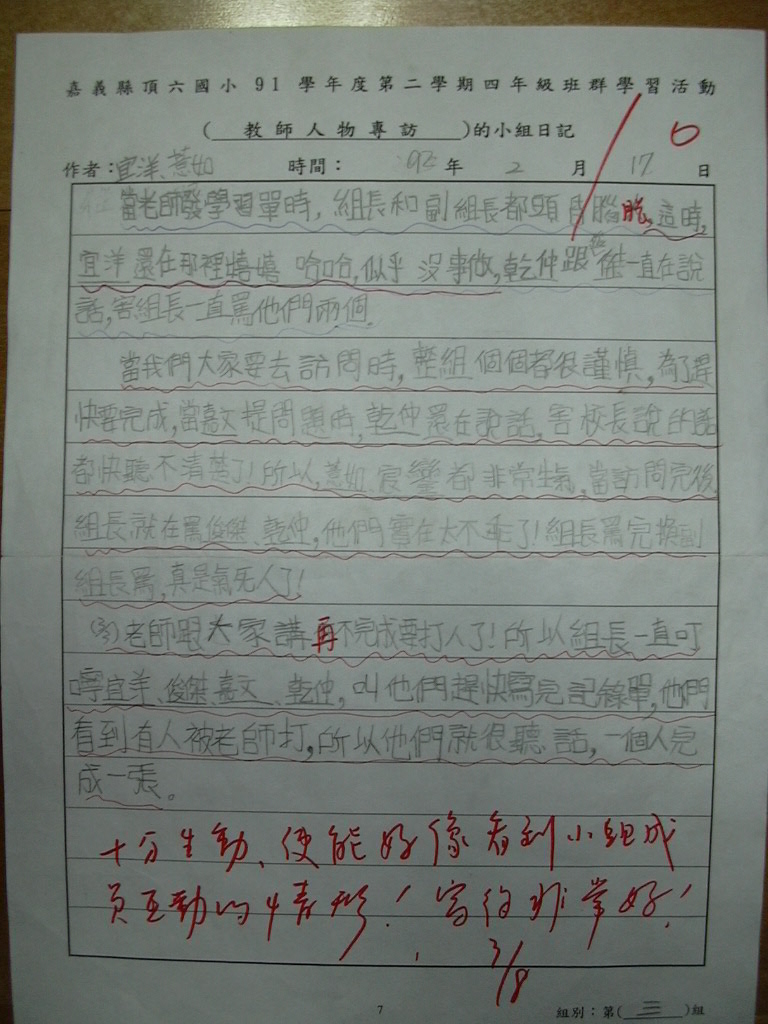 嘉義縣頂六國小91學年度第二學期四年級班群學習活動
(教師人物專訪)的小組日記
10
作者：宜洋、蕙如 時間：92年2月17日
當老師發學習單時，組長和副組長都頭昏腦脹，這時，
宜洋還在那裡嘻嘻哈哈，似乎沒事做，乾仲跟俊傑一直在說
話，害組長一直罵他們兩個。
當我們大家要去訪問時，整組個個都很謹慎，為了趕
快要完成，當嘉文提問題時，乾仲還在說話，害校長說的話
都快聽不清楚了！所以，蕙如、宸鑾都非常生氣，當訪問完後
組長就在罵俊傑、乾仲，他們實在太不乖了！組長罵完換副
組長罵，真是氣死人了！
老師跟大家講再不完成要打人了！所以組長一直叮
嚀宜洋、俊傑、嘉文、乾仲，叫他們趕快寫完記錄單，他們
看到有人被老師打，所以他們就很聽話，一個人完
成一張。
十分生動、使能好像看到小組成
員互動的情形！寫得非常好！
3/8
7
組別：第(三)組